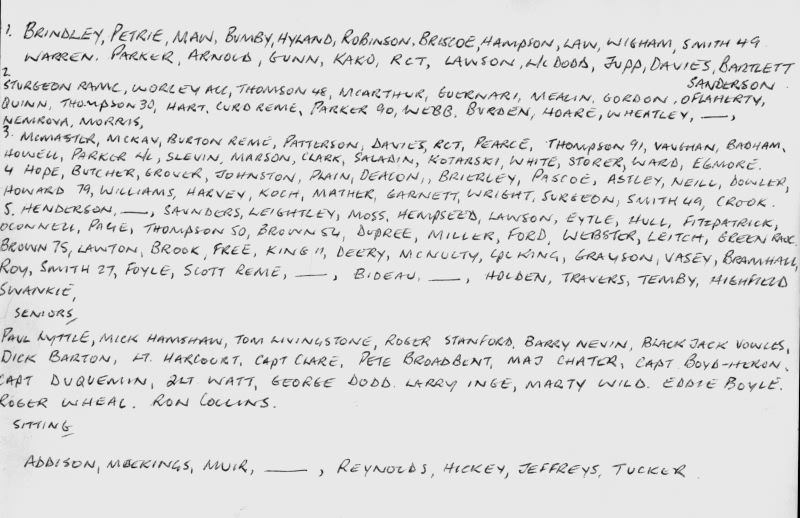 1. BRINDLEY, PETRIE, MAW, BUMBY, HYLAND, ROBINSON, BRISCOE, HAMPSON, LAW, WIGHAM, SMITH 49
WARREN. PARKER, ARNOLD, GUNN, KAKO, RCT, LAWSON, L/C DODD, JUPP, DAVIES, BARTLETT
SANDERSON.
2
STURGEON RAMC, WORLEY ACC, THOMSON 48, MCARTHUR, GUERNARI, MEALIN, GORDON, OFLAHERTY,
QUINN, THOMPSON 30, HART. CURD REME, PARKER 90, WEBB. BURDEN, HOARE, WHEATLEY, ——,
NEMROVA, MORRIS,
3. MCMASTER, MCKAY, BURTON REME, PATTERSON, DAVIES, RCT, PEARCE, THOMPSON 91, VAUGHAN, BADHAM,
HOWELL, PARKER 4/C, SLEVIN, MARSON, CLARK, SALADIN, KOTARSKI, WHITE, STORER, WARD, EGMORE.
4 HOPE, BUTCHER, GROVER, JOHNSTON, PLAIN, DEACON,, BRIERLEY, PASCOE, ASTLEY, NEILL, DOWLER,
HOWARD 79, WILLIAMS, HARVEY, KOCH, MATHER, GARNETT, WRIGHT, SURGEON, SMITH 49, CROOK.
5. HENDERSON, ——, SAUNDERS, LEIGHTLEY, MOSS, HEMPSEED, LAWSON, EYTLE, HULL, FITZPATRICK,
OCONNELL, PAGE, THOMPSON 50, BROWN 54, DUPREE, MILLER, FORD, WEBSTER, LEITCH, GREEN
BROWN 75, LAWTON, BROOK, FREE, KING 11, DEERY, MCNULTY, CPL KING, GRAYSON, VASEY, BRAMHALL,
ROY, SMITH 27, FOYLE, SCOTT REME, ——, BIDEAU, ——, HOLDEN, TRAVERS, TEMBY, HIGHFIELD
SWANKIE,
SENIORS,
PAUL LYTTLE, MICK HAMSHAW, TOM LIVINGSTONE, ROGER STANFORD, BARRY NEVIN, BLACK JACK VOWLES,
DICK BARTON, LT. HARCOURT, CAPT CLARE, PETE BROADBENT, MAJ CHATER, CAPT BOYD-HERON.
CAPT DUQUEMIN, 2LT. WATT, GEORGE DODD. LARRY INGE, MARTY WILD. EDDIE BOYLE.
ROGER WHEAL. RON COLLINS.
SITTING
ADDISON, MUIR, ——, REYNOLDS, HICKEY, JEFFREYS, TUCKER